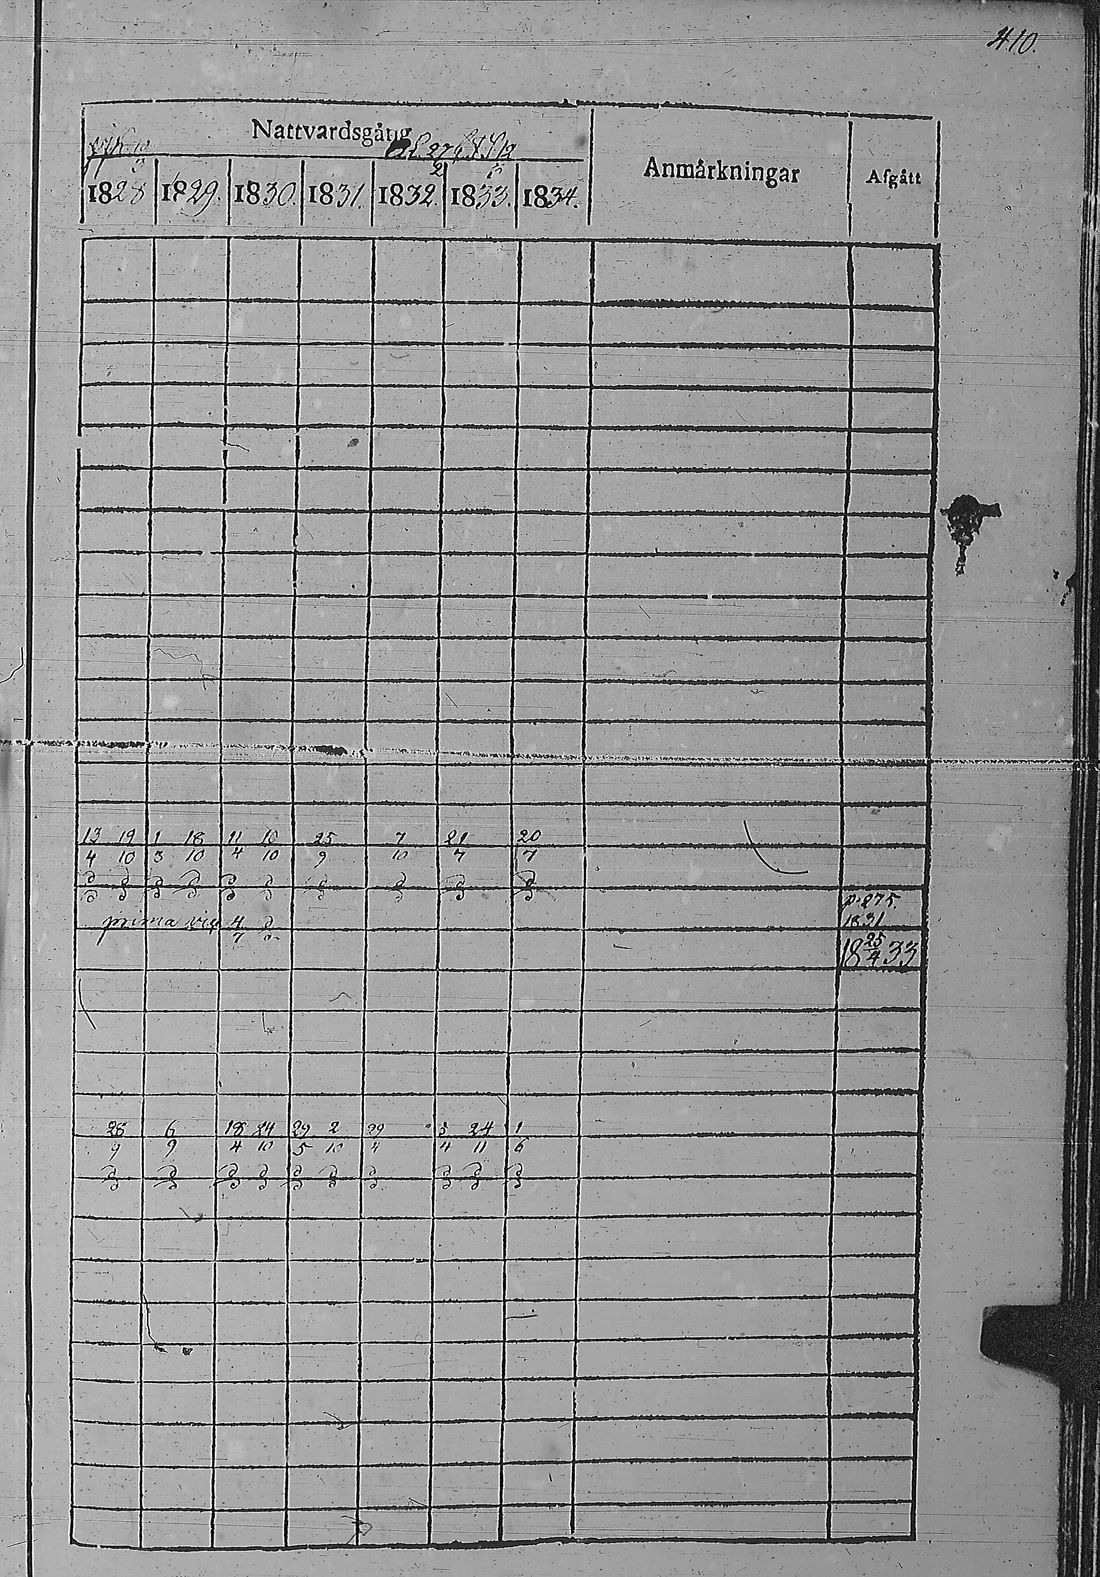 410.
Nattvardsgång
Anmärkningar
Afgått
1828 1829. 1830. 1831. 1832. 1833. 1834.
13 19 1 18 11 10 25 7 21 20
4 10 3 10 4 10 9 10 7 7
p. 275
prima vic 4
7
1831
18 25/4 33
28 6 18 24 29 2 29 5 24 1
9 9 4 10 5 10 4 4 11 6